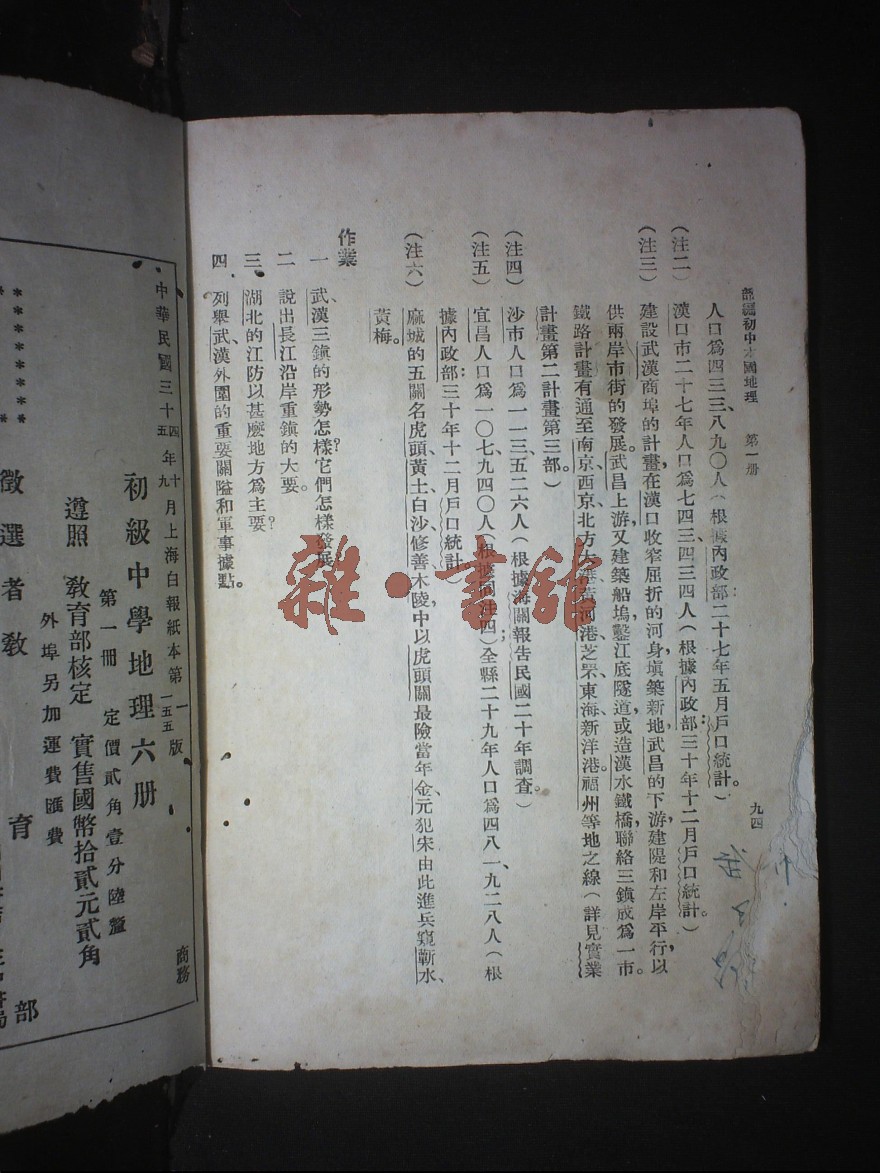 部編初中本國地理　第一册
九四
人口爲四三三、八九〇人（根據內政部二十七年五月戶口統計。）
（注二）　漢口市二十七年人口爲七四三、四三四人（根據內政部：三十年十二月戶口統計。）
（注三）　建設武漢商埠的計畫，在漢口收窄屈折的河身，塡築新地，武昌的下游建隄和左岸平行，以
供兩岸市街的發展。武昌上游又建築船塢，鑿江底隧道，或造漢水鐵橋，聯絡三鎭成爲一市。
鐵路計畫有通至南京、西京、北方大港、黃河港、芝罘、東海、新洋港、福州等地之線（詳見實業
計畫第二計畫第三部。）
（注四）　沙市人口爲一一三、五二六人（根據海關報告民國二十年調査。）
（注五）　宜昌人口爲一〇七、九四〇人（根據同注四）；全縣二十九年人口爲四八一、九二八人（根
據內政部：三十年十二月戶口統計）
（注六）　麻城的五關名虎頭、黃土、白沙、修善、木陵，中以虎頭關最險，當年金元犯宋，由此進兵窺蘄水、
黃梅。
作業
一　武漢三鎭的形勢怎樣？它們怎樣發展？
二　說出長江沿岸重鎭的大要。
三　湖北的江防以甚麽地方爲主要？
四　列舉武漢外圍的重要關隘和軍事據點。
中華民國三十五四年九十月上海白報紙本第一五五版
初級中學地理六册
第一冊　定價貳角壹分陸釐
遵照　敎育部核定　實售國幣拾貳元貳角
外埠另加運費匯費
商務
徵選者敎育部
雜·書館